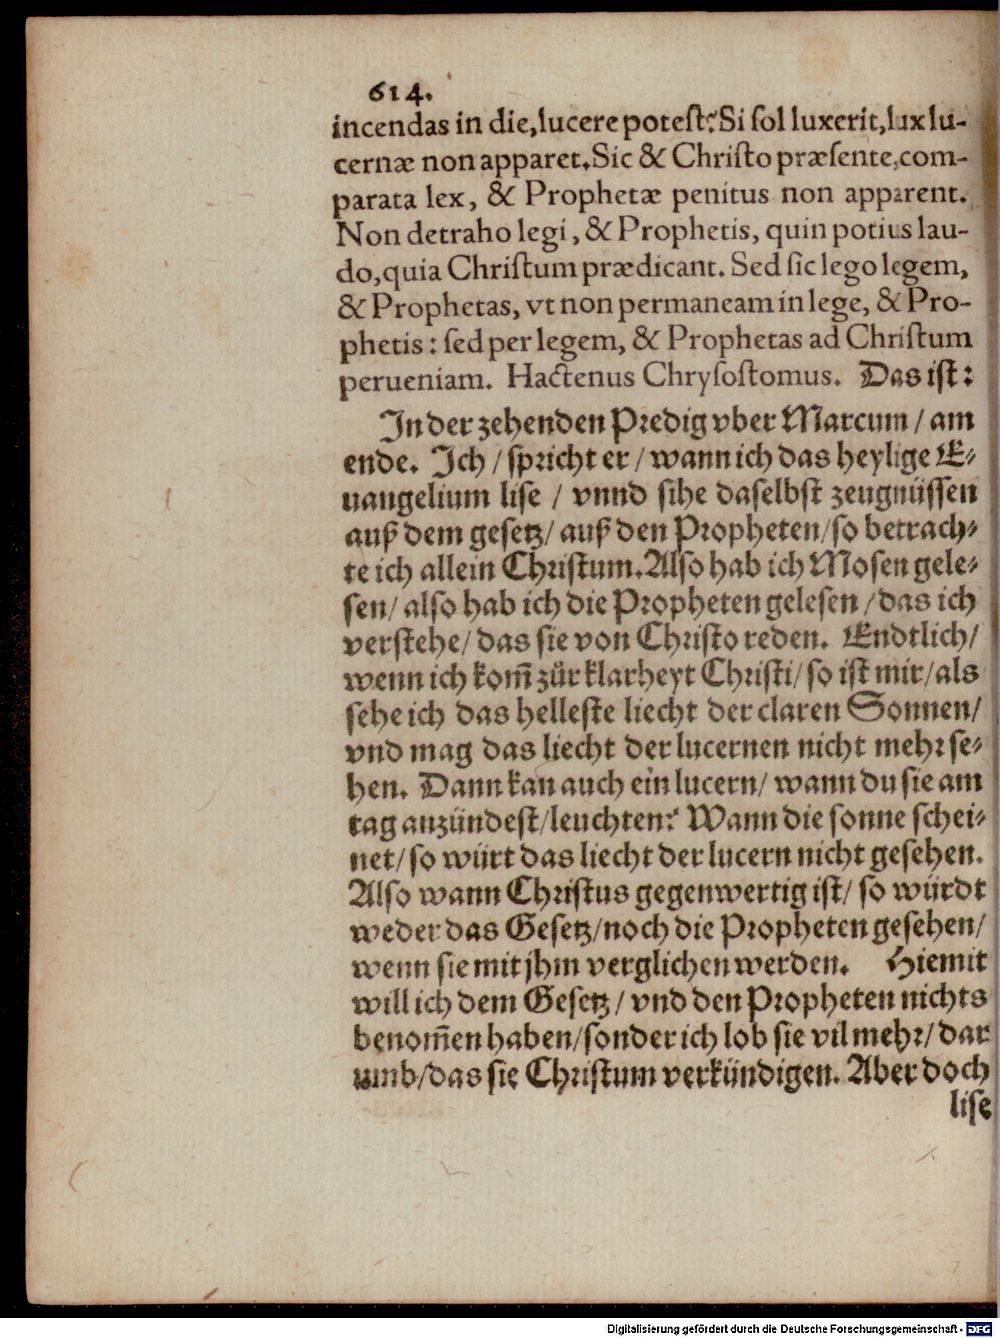 614.
incendas in die, lucere potest? Si sol luxerit, lux lu-
cernæ non apparet. Sic & Christo præsente, com-
parata lex, & Prophetæ penitus non apparent.
Non detraho legi, & Prophetis, quin potius lau-
do, quia Christum prædicant. Sed sic lego legem,
& Prophetas, vt non permaneam in lege, & Pro-
phetis: sed per legem, & Prophetas ad Christum
perueniam. Hactenus Chrysostomus. Das ist:
In der zehenden Predig vber Marcum / am
ende. Ich / spricht er / wann ich das heylige E-
uangelium lise / vnnd sihe daselbst zeugnüssen
auß dem gesetz / auß den Propheten / so betrach-
te ich allein Christum. Also hab ich Mosen gele-
sen / also hab ich die Propheten gelesen / das ich
verstehe / das sie von Christo reden. Endtlich /
wenn ich kom̃ zür klarheyt Christi / so ist mir / als
sehe ich das helleste liecht der claren Sonnen /
vnd mag das liecht der lucernen nicht mehr se-
hen. Dann kan auch ein lucern / wann du sie am
tag anzündest / leuchten? Wann die sonne schei-
net / so würt das liecht der lucern nicht gesehen.
Also wann Christus gegenwertig ist / so würdt
weder das Gesetz / noch die Propheten gesehen /
wenn sie mit jhm verglichen werden. Hiemit
will ich dem Gesetz / vnd den Propheten nichts
benom̃en haben / sonder ich lob sie vil mehr / dar
umb / das sie Christum verkündigen. Aber doch
lise
Digitalisierung gefördert durch die Deutsche Forschungsgemeinschaft - DFG